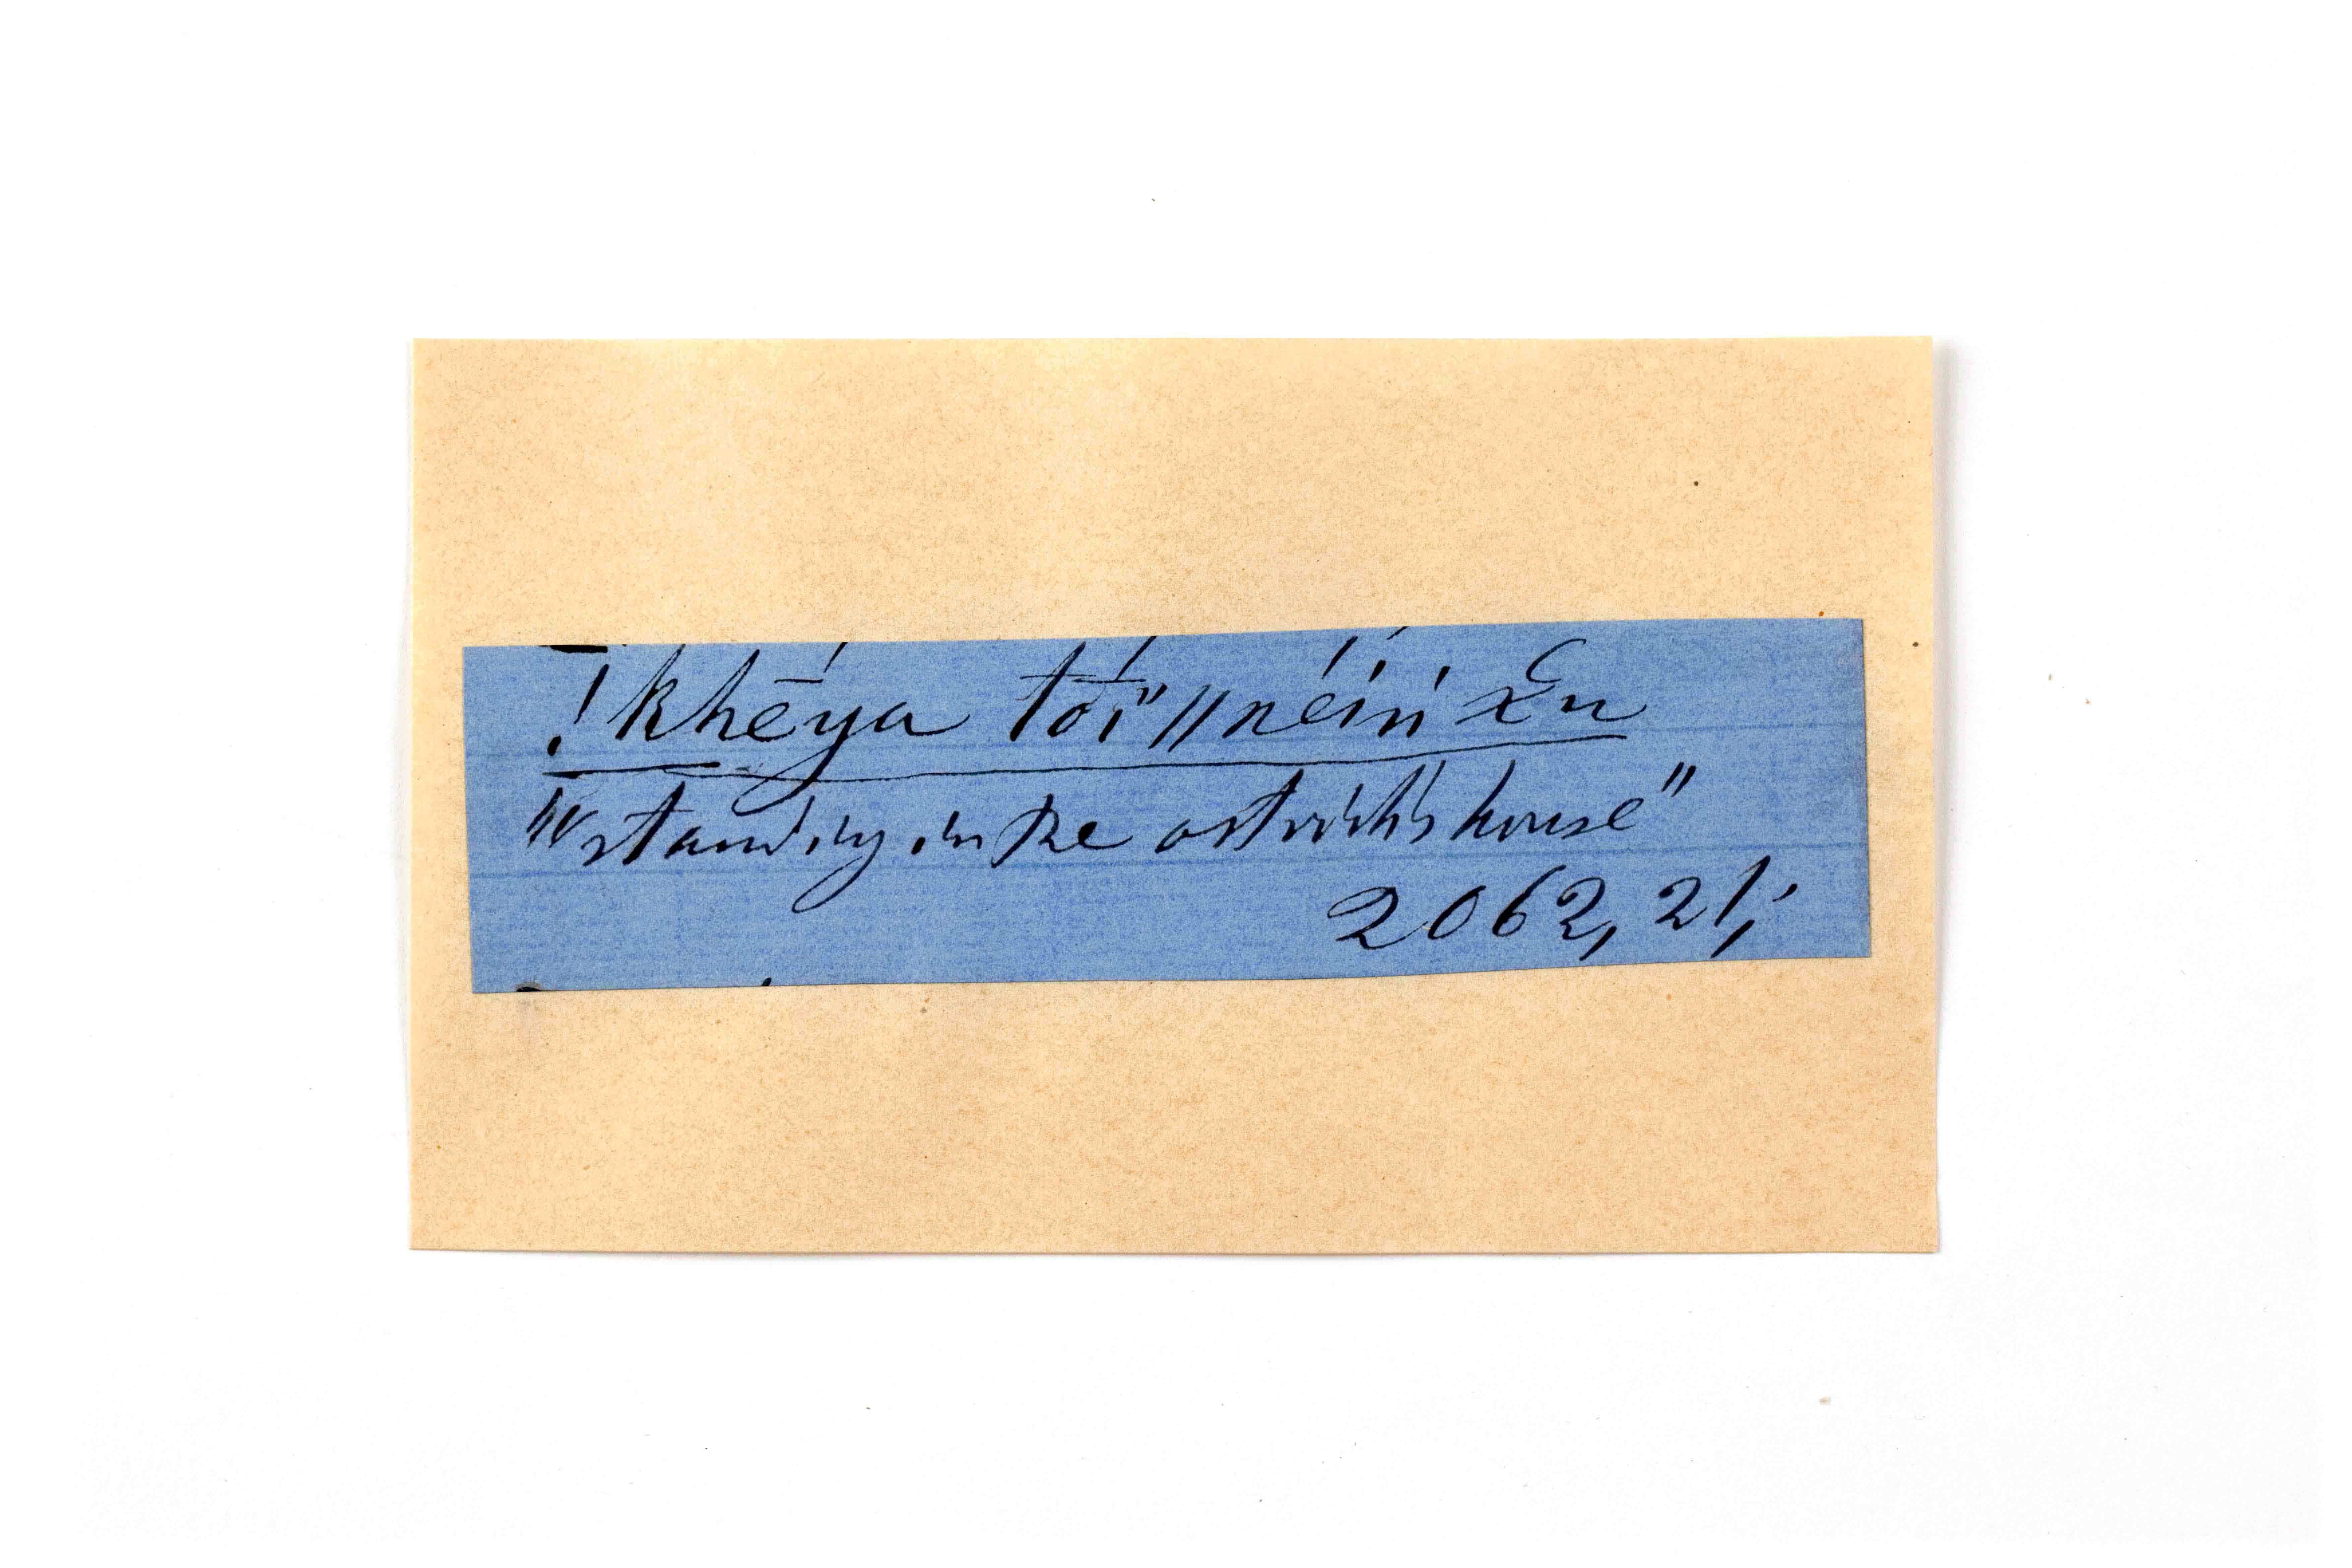 !khḗya tói"//néín χu
"standing in the ostrich's house"
2062, 21;